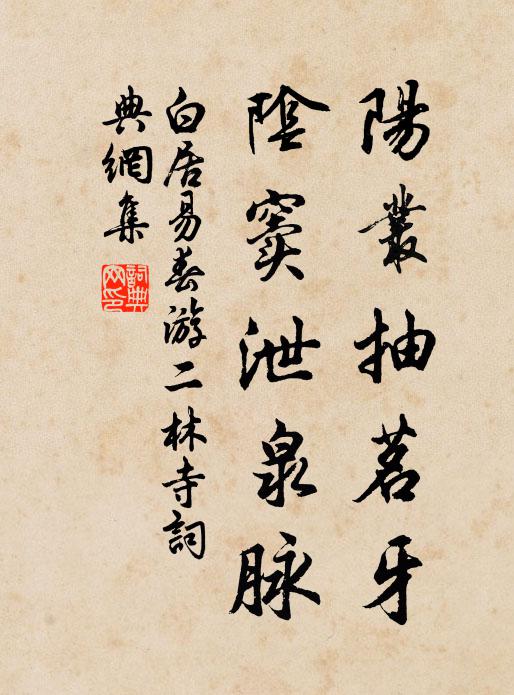 陽叢抽茗牙
陰竇泄泉脉
白居易春游二林寺詞
典網集
詞典網印